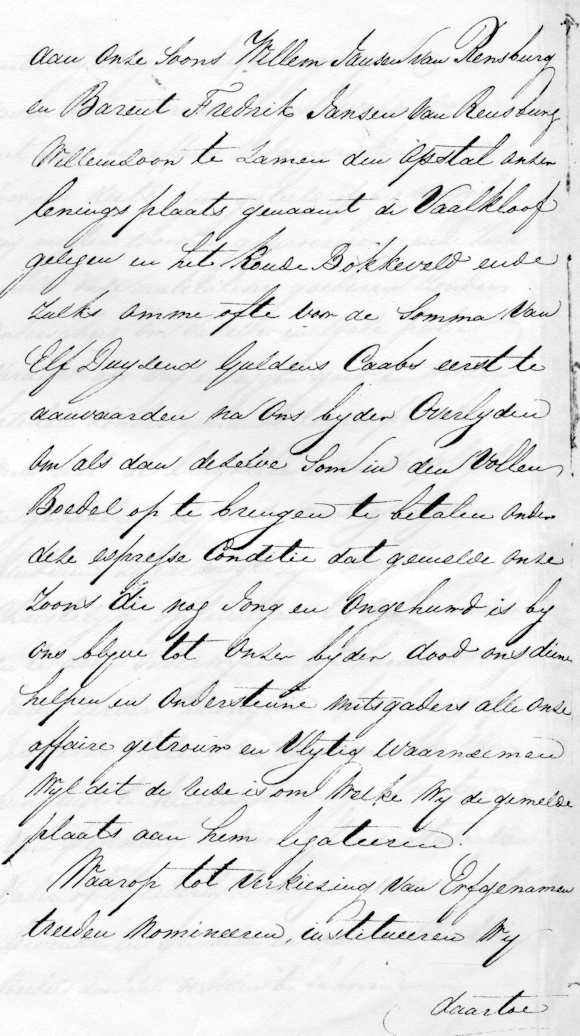 aan onze Soons Willem Jansen van Rensburg
en Barent Fredrik Jansen van Rensburg
Willemsoon te zamen den opstal onzer
leenings plaats genaamt de Vaalkloof
gelegen in het Koude Bokkeveld ende
zulks omme ofte voor de Somma van
Elf Duyzend Guldens Caabs eerst te
aanvaarden na ons byder Overlyden
om als dan dezelve Som in den Vollen
Boedel op te brengen te betalen onder
deze expresse Conditie dat gemelde onze
zoons die nog Jong en Ongehuwd is by
ons blyve tot onzer byder dood ons diene
helpen en ondersteune mitsgaders alle onze
affaire getrouw en Vlytig Waarneemen
Wyl dit de rede is om Welke Wy de gemelde
plaats aan hem legateeren.
Waarop tot verkiezing van Erfgenamen
treeden Nomineeren, institueeren Wy
daartoe